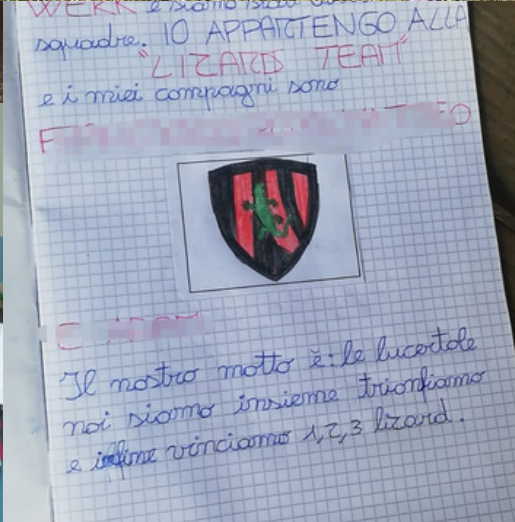 WERK e siamo
squadre. IO APPARTENGO ALLA
"LIZARDS TEAM"
e i miei compagni sono
Il nostro motto è: le lucertole
noi siamo insieme trionfiamo
e infine vinciamo 1,2,3 lizard.